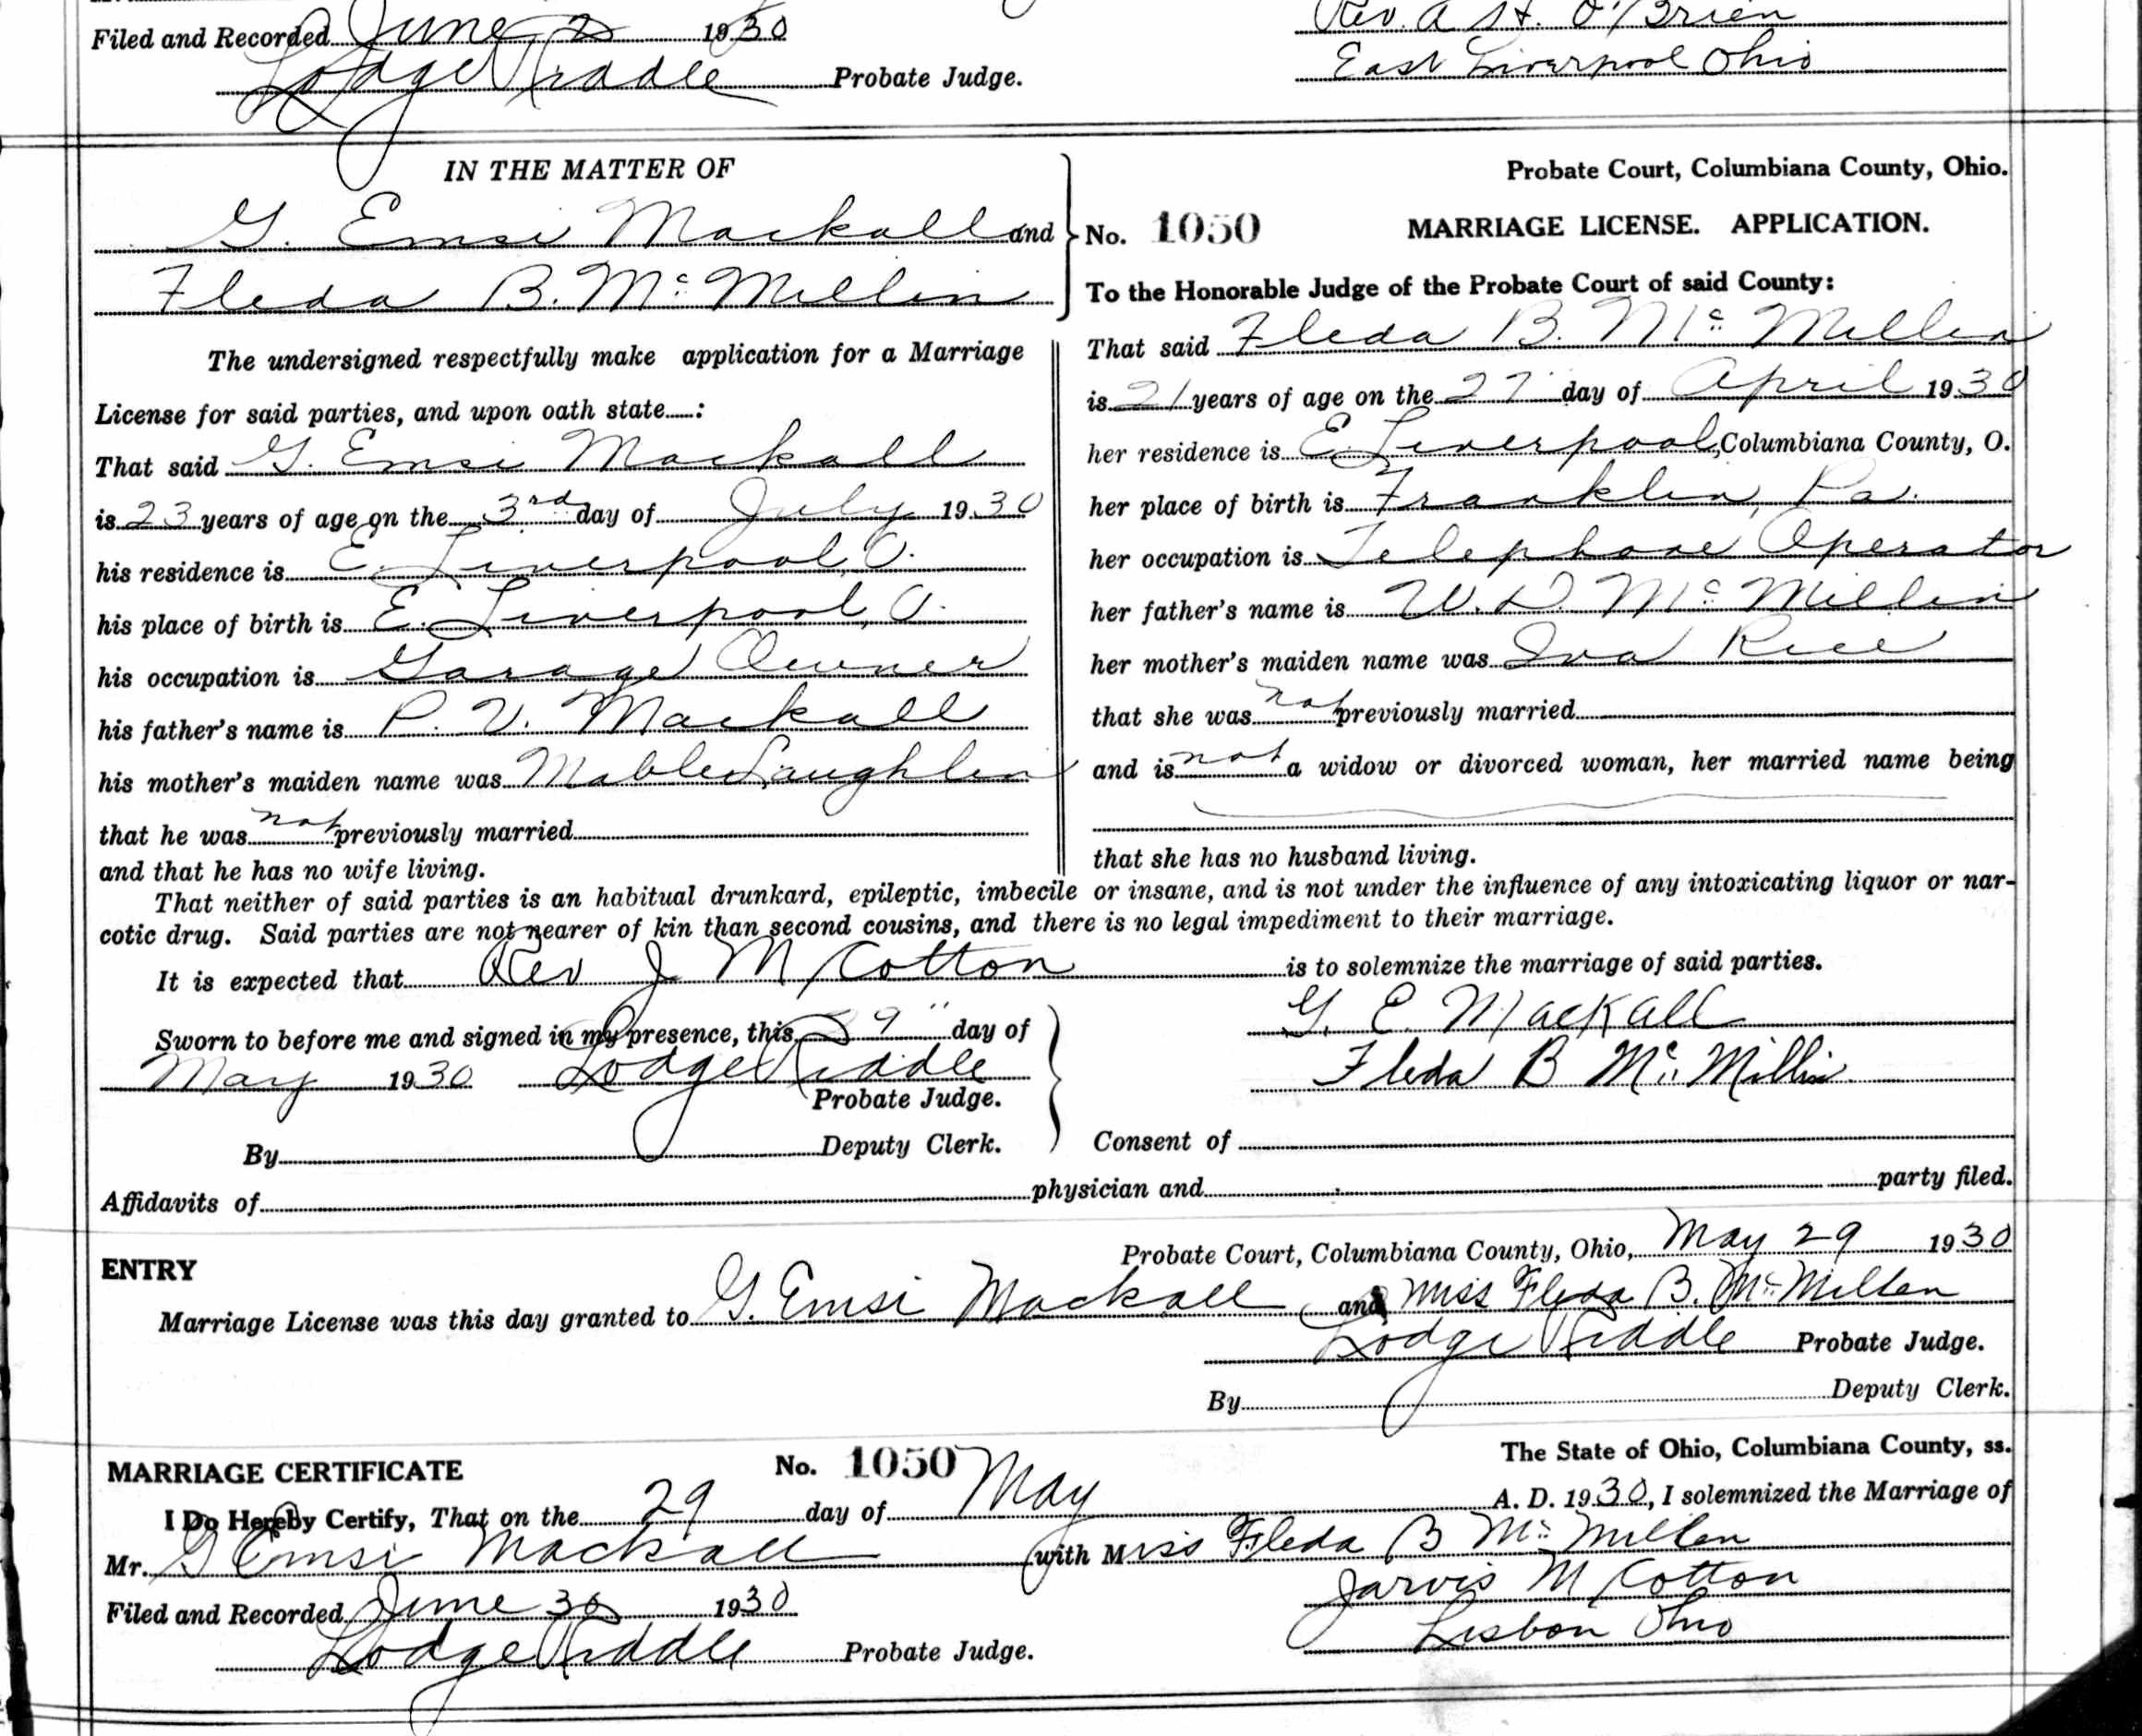 Filed and Recorded June 2 1930
Lodge Riddle Probate Judge.
Rev. A St. O'Brien
East Liverpool Ohio
IN THE MATTER OF
G. Emsi Mackall and
Fleda B. McMillin
The undersigned respectfully make application for a Marriage
License for said parties, and upon oath state :
That said G. Emsi Mackall
is 23 years of age on the 3rd day of July 1930
his residence is E. Liverpool, O.
his place of birth is E. Liverpool, O.
his occupation is Garage Owner
his father's name is P. V. Mackall
his mother's maiden name was Mable Laughlin
that he was not previously married
and that he has no wife living.
Probate Court, Columbiana County, Ohio.
No. 1050 MARRIAGE LICENSE. APPLICATION.
To the Honorable Judge of the Probate Court of said County:
That said Fleda B. McMillin
is 21 years of age on the 27 day of April 1930
her residence is E. Liverpool, Columbiana County, O.
her place of birth is Franklin, Pa.
her occupation is Telephone Operator
her father's name is W. D. McMillin
her mother's maiden name was Iva Rice
that she was not previously married
and is not a widow or divorced woman, her married name being
that she has no husband living.
That neither of said parties is an habitual drunkard, epileptic, imbecile or insane, and is not under the influence of any intoxicating liquor or nar-
cotic drug. Said parties are not nearer of kin than second cousins, and there is no legal impediment to their marriage.
It is expected that Rev J M Cotton is to solemnize the marriage of said parties.
Sworn to before me and signed in my presence, this 29" day of
May 1930 Lodge Riddle
Probate Judge.
By Deputy Clerk.
G. E. Mackall
Fleda B McMillin
Consent of
Affidavits of physician and party filed.
ENTRY
Probate Court, Columbiana County, Ohio, May 29 1930
Marriage License was this day granted to G. Emsi Mackall and Miss Fleda B. McMillen
Lodge Riddle Probate Judge.
By Deputy Clerk.
MARRIAGE CERTIFICATE No. 1050 The State of Ohio, Columbiana County, ss.
I Do Hereby Certify, That on the 29 day of May A. D. 1930, I solemnized the Marriage of
Mr. G Emsi Mackall with Miss Fleda B McMillen
Filed and Recorded June 30 1930
Lodge Riddle Probate Judge.
Jarvis M Cotton
Lisbon Ohio